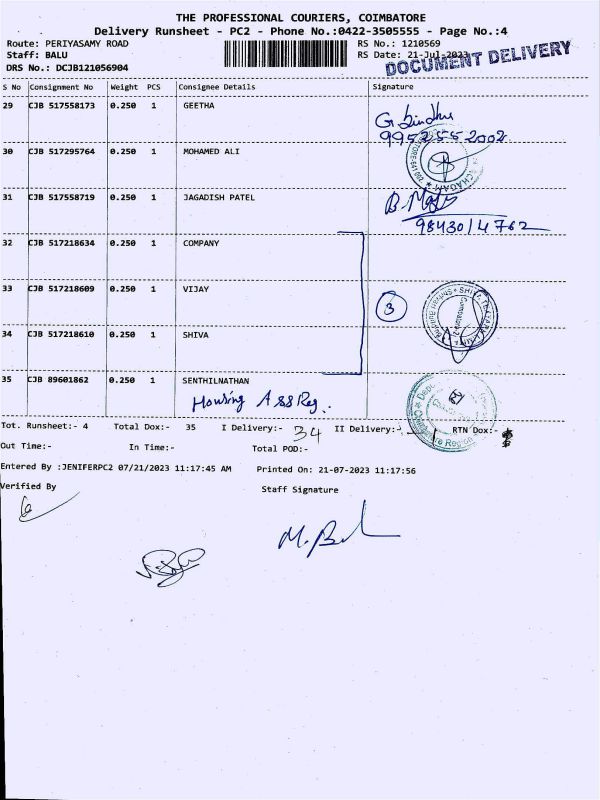 THE PROFESSIONAL COURIERS, COIMBATORE
Delivery Runsheet - PC2 - Phone No.:0422-3505555 - Page No.:4
Route: PERIYASAMY ROAD RS No.: 1210569
Staff: BALU RS Date: 21-Jul-2023
DRS No.: DCJB121056904 DOCUMENT DELIVERY
S No Consignment No Weight PCS Consignee Details Signature
29 CJB 517558173 0.250 1 GEETHA
G. bindhu
9952552002
30 CJB 517295764 0.250 1 MOHAMED ALI
31 CJB 517558719 0.250 1 JAGADISH PATEL
9843014762
32 CJB 517218634 0.250 1 COMPANY
33 CJB 517218609 0.250 1 VIJAY
3
34 CJB 517218610 0.250 1 SHIVA
35 CJB 89601862 0.250 1 SENTHILNATHAN
Housing Ass Reg.
Tot. Runsheet:- 4 Total Dox:- 35 I Delivery:- 34 II Delivery:- RTN Dox:-
Out Time:- In Time:- Total POD:-
Entered By :JENIFERPC2 07/21/2023 11:17:45 AM Printed On: 21-07-2023 11:17:56
Verified By Staff Signature